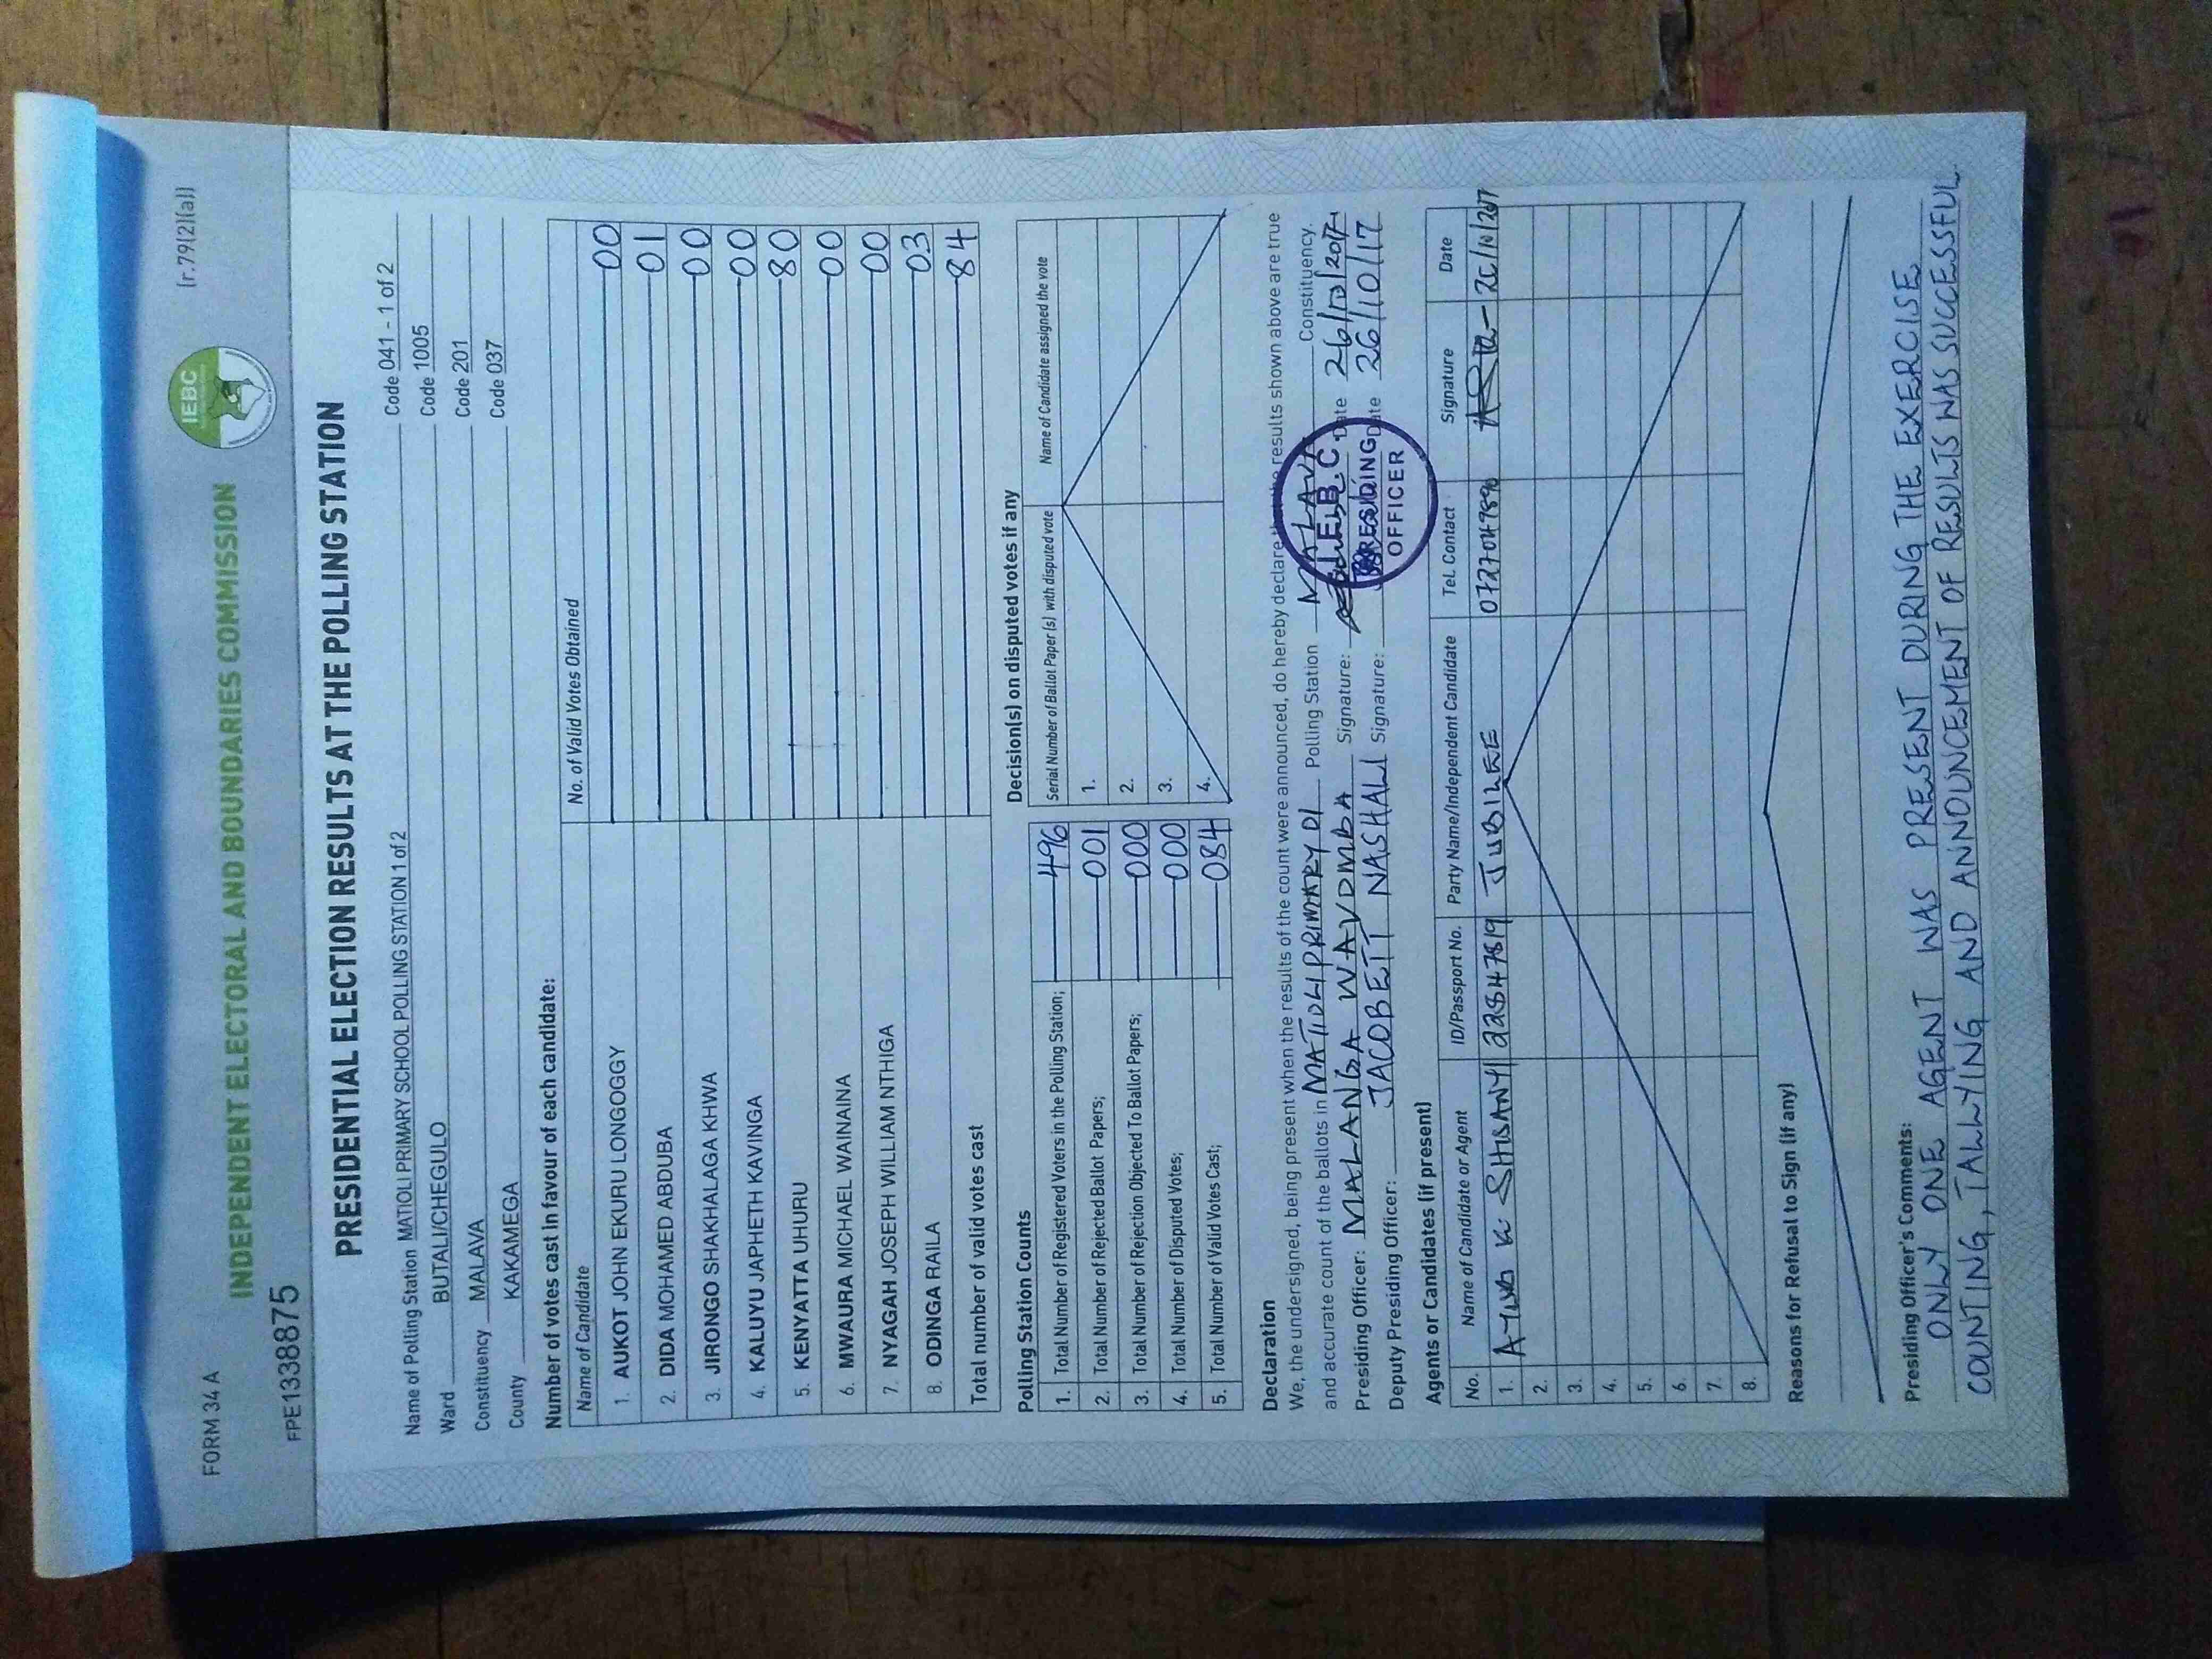 FORM 34 A
IEBC
[r.79(2)(a)]
INDEPENDENT ELECTORAL AND BOUNDARIES COMMISSION
FPE1338875
PRESIDENTIAL ELECTION RESULTS AT THE POLLING STATION
Name of Polling Station MATIOLI PRIMARY SCHOOL POLLING STATION 1 of 2 Code 041 - 1 of 2
Ward BUTALI/CHEGULO Code 1005
Constituency MALAVA Code 201
County KAKAMEGA Code 037
Number of votes cast in favour of each candidate:
Name of Candidate No. of Valid Votes Obtained
1. AUKOT JOHN EKURU LONGOGGY 00
2. DIDA MOHAMED ABDUBA 01
3. JIRONGO SHAKHALAGA KHWA 00
4. KALUYU JAPHETH KAVINGA 00
5. KENYATTA UHURU 80
6. MWAURA MICHAEL WAINAINA 00
7. NYAGAH JOSEPH WILLIAM NTHIGA 00
8. ODINGA RAILA 03
Total number of valid votes cast 84
Polling Station Counts
1. Total Number of Registered Voters in the Polling Station; 496
2. Total Number of Rejected Ballot Papers; 001
3. Total Number of Rejection Objected To Ballot Papers; 000
4. Total Number of Disputed Votes; 000
5. Total Number of Valid Votes Cast; 084
Decision(s) on disputed votes if any
Serial Number of Ballot Paper (s) with disputed vote Name of Candidate assigned the vote
1.
2.
3.
4.
Declaration
We, the undersigned, being present when the results of the count were announced, do hereby declare that the results shown above are true
and accurate count of the ballots in MATIOLI PRIMARY 01 Polling Station MALAVA Constituency.
Presiding Officer: MALANGA WAVOMBA Signature: Date 26/10/2017
Deputy Presiding Officer: JACOBETT NASHALI Signature: Date 26/10/17
I.E.B.C.
PRESIDING
OFFICER
Agents or Candidates (if present)
No. Name of Candidate or Agent ID/Passport No. Party Name/Independent Candidate Tel. Contact Signature Date
1. K. JUBILEE 26/10/2017
2.
3.
4.
5.
6.
7.
8.
Reasons for Refusal to Sign (if any)
Presiding Officer's Comments:
ONLY ONE AGENT WAS PRESENT DURING THE EXERCISE.
COUNTING, TALLYING AND ANNOUNCEMENT OF RESULTS WAS SUCCESSFUL